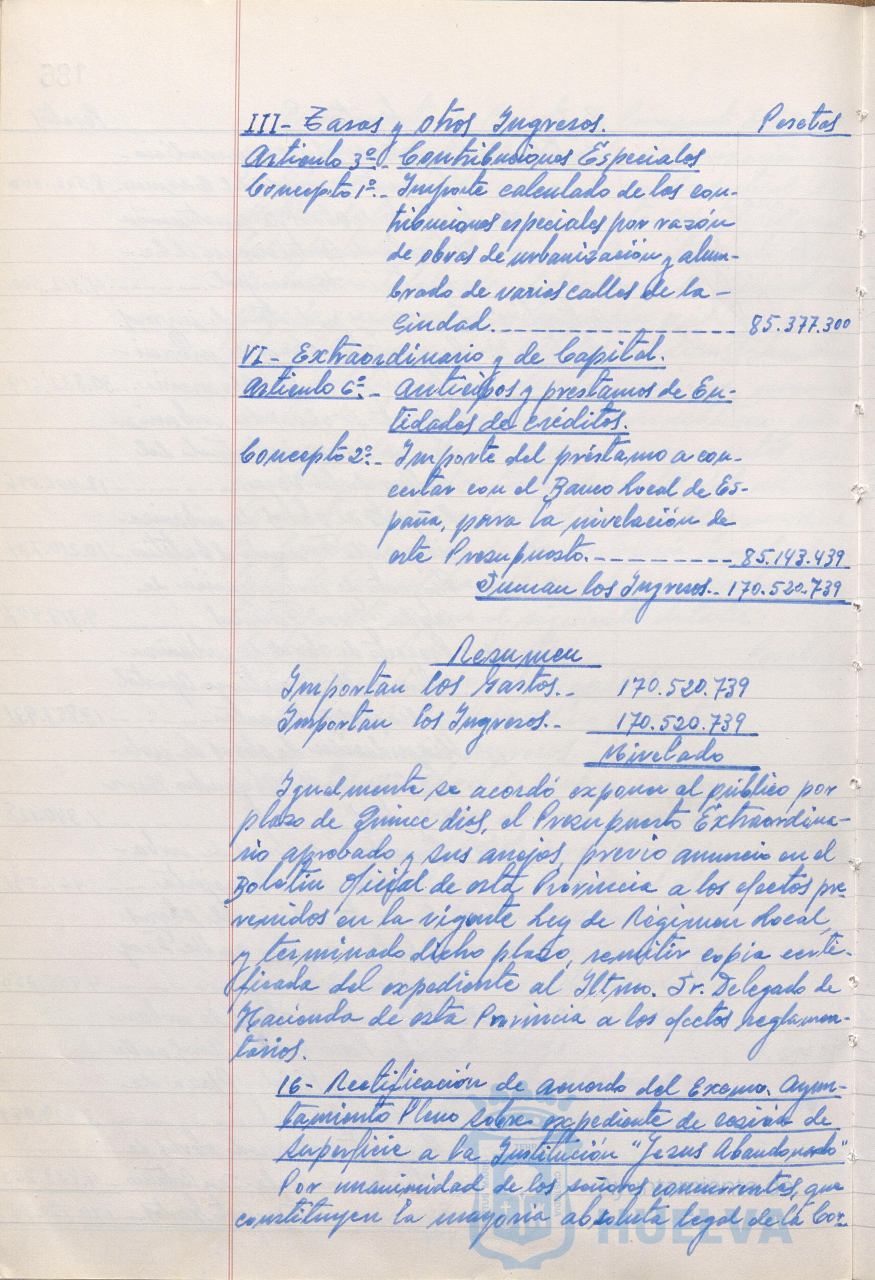 III- Tasas y otros Ingresos. Pesetas
Artículo 3º.- Contribuciones Especiales
Concepto 1º.- Importe calculado de las con-
tribuciones especiales por razón
de obras de urbanización y alum-
brado de varias calles de la
Ciudad. 85.377.300
VI- Extraordinario y de Capital.
Artículo 6º.- Anticipos y préstamos de En-
tidades de créditos.
Concepto 2º.- Importe del préstamo a con-
certar con el Banco Local de Es-
paña, para la nivelación de
este Presupuesto. 85.143.439
Suman los Ingresos.- 170.520.739
Resumen
Importan los Gastos.- 170.520.739
Importan los Ingresos.- 170.520.739
Nivelado
Igualmente se acordó exponer al público por
plazo de quince dias, el Presupuesto Extraordina-
rio aprobado y sus anejos, previo anuncio en el
Boletín Oficial de esta Provincia a los efectos pre-
venidos en la vigente Ley de Régimen Local,
y terminado dicho plazo, remitir copia certi-
ficada del expediente al Iltmo. Sr. Delegado de
Hacienda de esta Provincia a los efectos reglamen-
tarios.
16- Rectificación de acuerdo del Excmo. Ayun-
tamiento Pleno sobre expediente de cesión de
superficie a la Institución "Jesus Abandonado"
Por unanimidad de los señores concurrentes, que
constituyen la mayoría absoluta legal de la Cor-
HUELVA